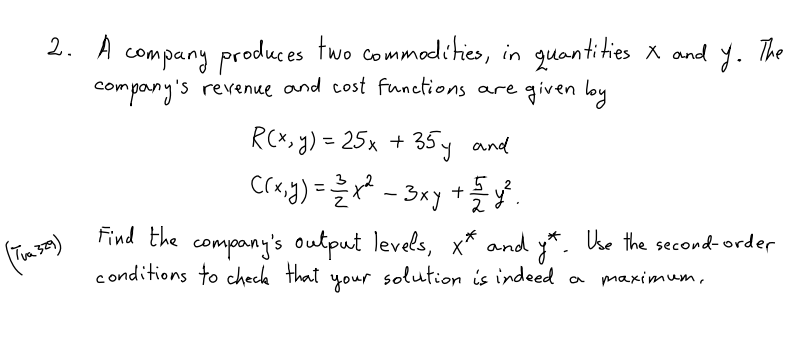 2. A company produces two commodities, in quantities x and y. The
company's revenue and cost functions are given by
R(x,y) = 25x + 35y and
C(x,y) = 3/2 x² - 3xy + 5/2 y².
Find the company's output levels, x* and y*. Use the second-order
conditions to check that your solution is indeed a maximum.